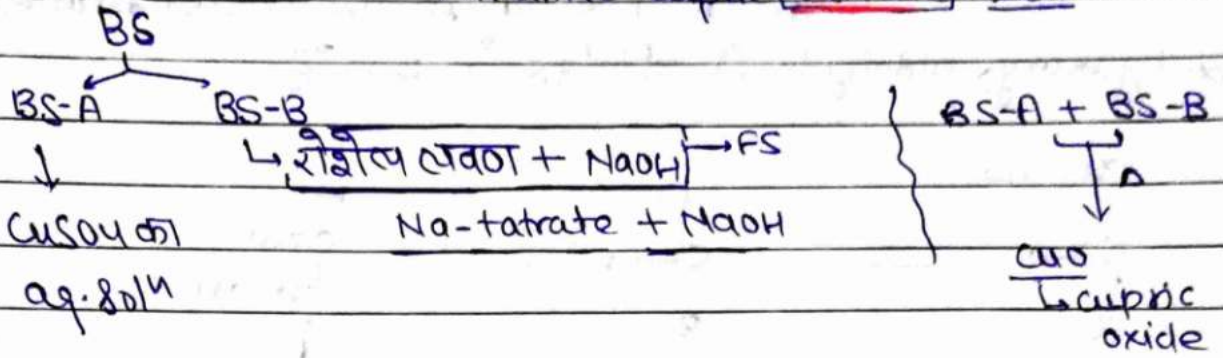 BS
BS-A BS-B
रोशेल लवण + NaOH → FS
CuSO4 का
aq. Solⁿ
Na-tatrate + NaOH
BS-A + BS-B
Δ
CuO
↳ cupric
oxide